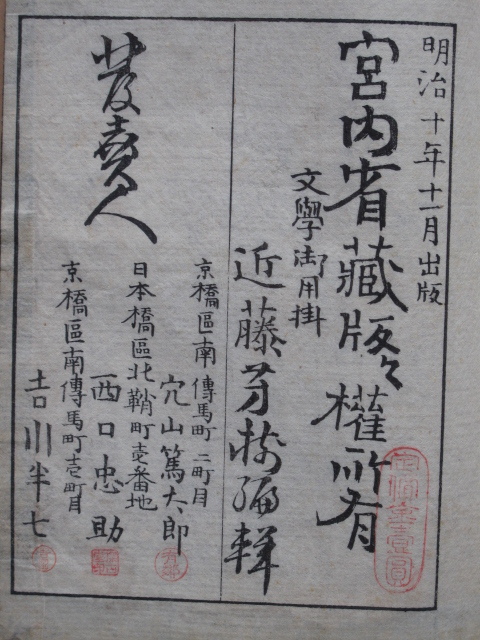 明治十年十一月出版
宮内省藏版々權所有
文學御用掛
近藤芳樹編輯
發賣人
京橋區南傳馬町二町目
穴山篤太郎
日本橋區北鞘町壱番地
西口忠助
京橋區南傳馬町壱町目
吉川半七
定價金壹圓